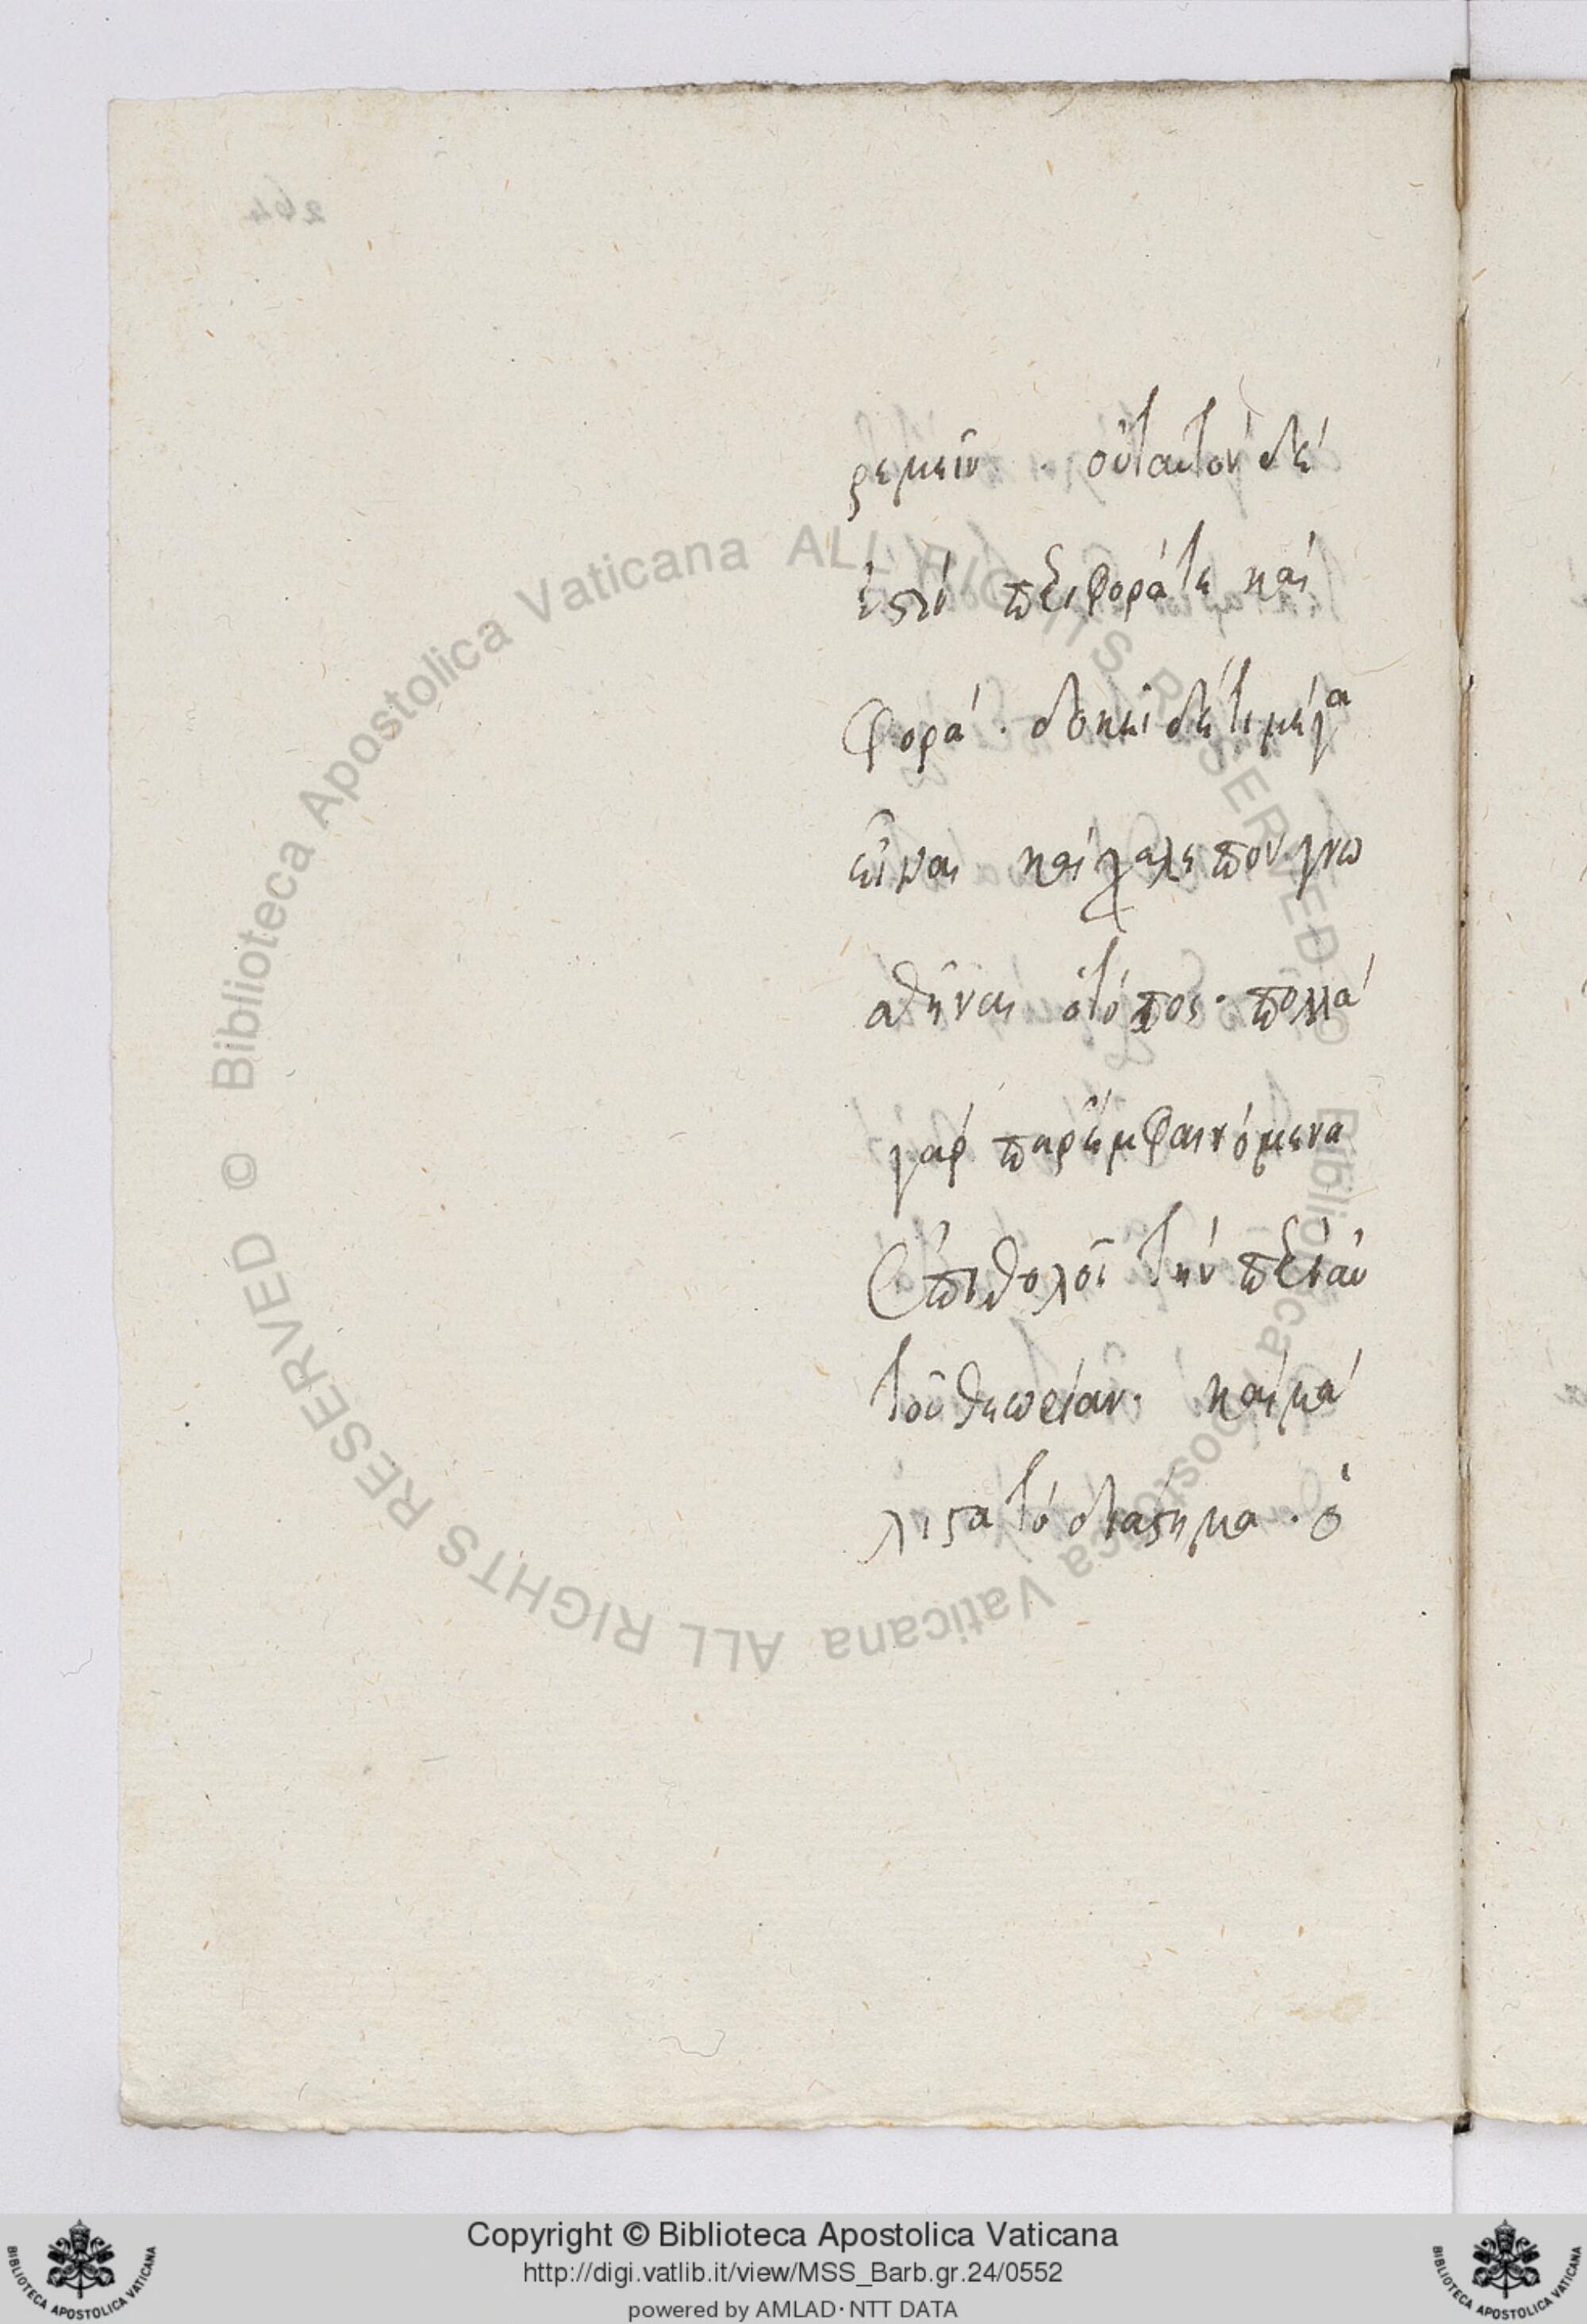 264
ρεμεῖν . οὐ ταυτὸν δέ
ἐστὶ περιφορά τε καὶ
φορά . δοκεῖ δέ τι μέγα
εἶναι καὶ χαλεπὸν γνω
σθῆναι ὁ τόπος . πολλὰ
γὰρ παρεμφαινόμενα
ἐπιθολοῖ τὴν περὶ αὐ
τοῦ θεωρίαν . καὶ μά
λιστα τὸ διάστημα . ὁ
© Biblioteca Apostolica Vaticana ALL RIGHTS RESERVED
© Biblioteca Apostolica Vaticana ALL RIGHTS RESERVED
Copyright © Biblioteca Apostolica Vaticana
http://digi.vatlib.it/view/MSS_Barb.gr.24/0552
powered by AMLAD·NTT DATA
BIBLIOTECA APOSTOLICA VATICANA
BIBLIOTECA APOSTOLICA VATICANA